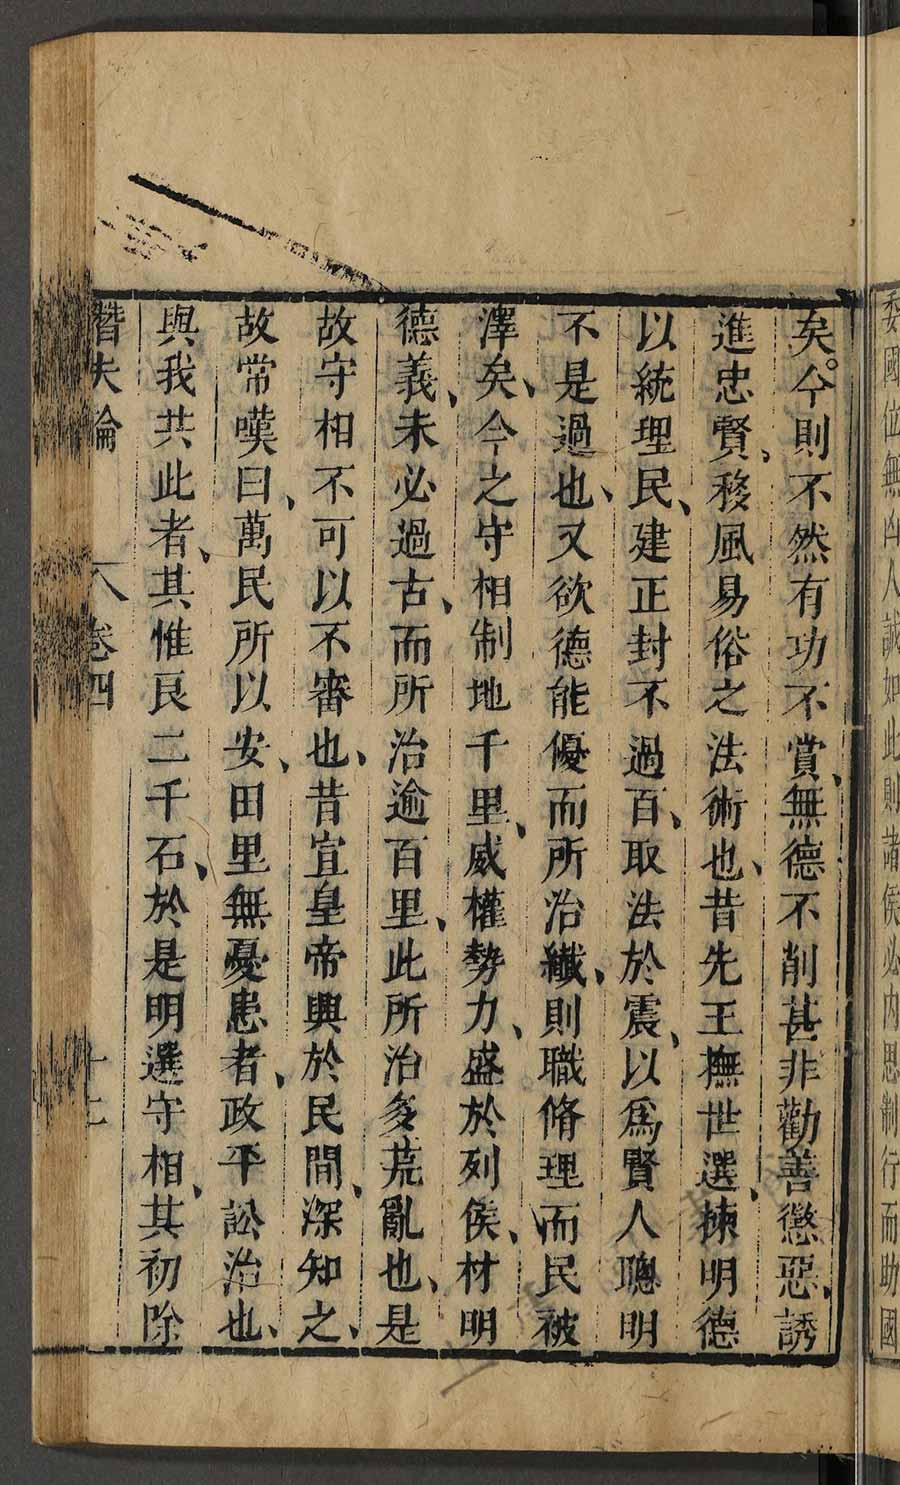 委國位無凶人誠如此則諸侯必內思制行而助國
矣。今則不然有功不賞、無德不削甚非勸善懲惡、誘
進忠賢、移風易俗之法術也、昔先王撫世選、揀明德
以統理民、建正封不過百、取法於震、以爲賢人聰明
不是過也、又欲德能優而所治纖、則職脩理而民被
澤矣、今之守相制地千里、威權勢力、盛於列侯、材明
德義、未必過古、而所治逾百里、此所治多荒亂也、是
故守相不可以不審也、昔宣皇帝興於民間、深知之、
故常嘆曰、萬民所以安、田里無憂患者、政平訟治也、
與我共此者、其惟良二千石、於是明選守相、其初除
潛夫論 卷四 十二